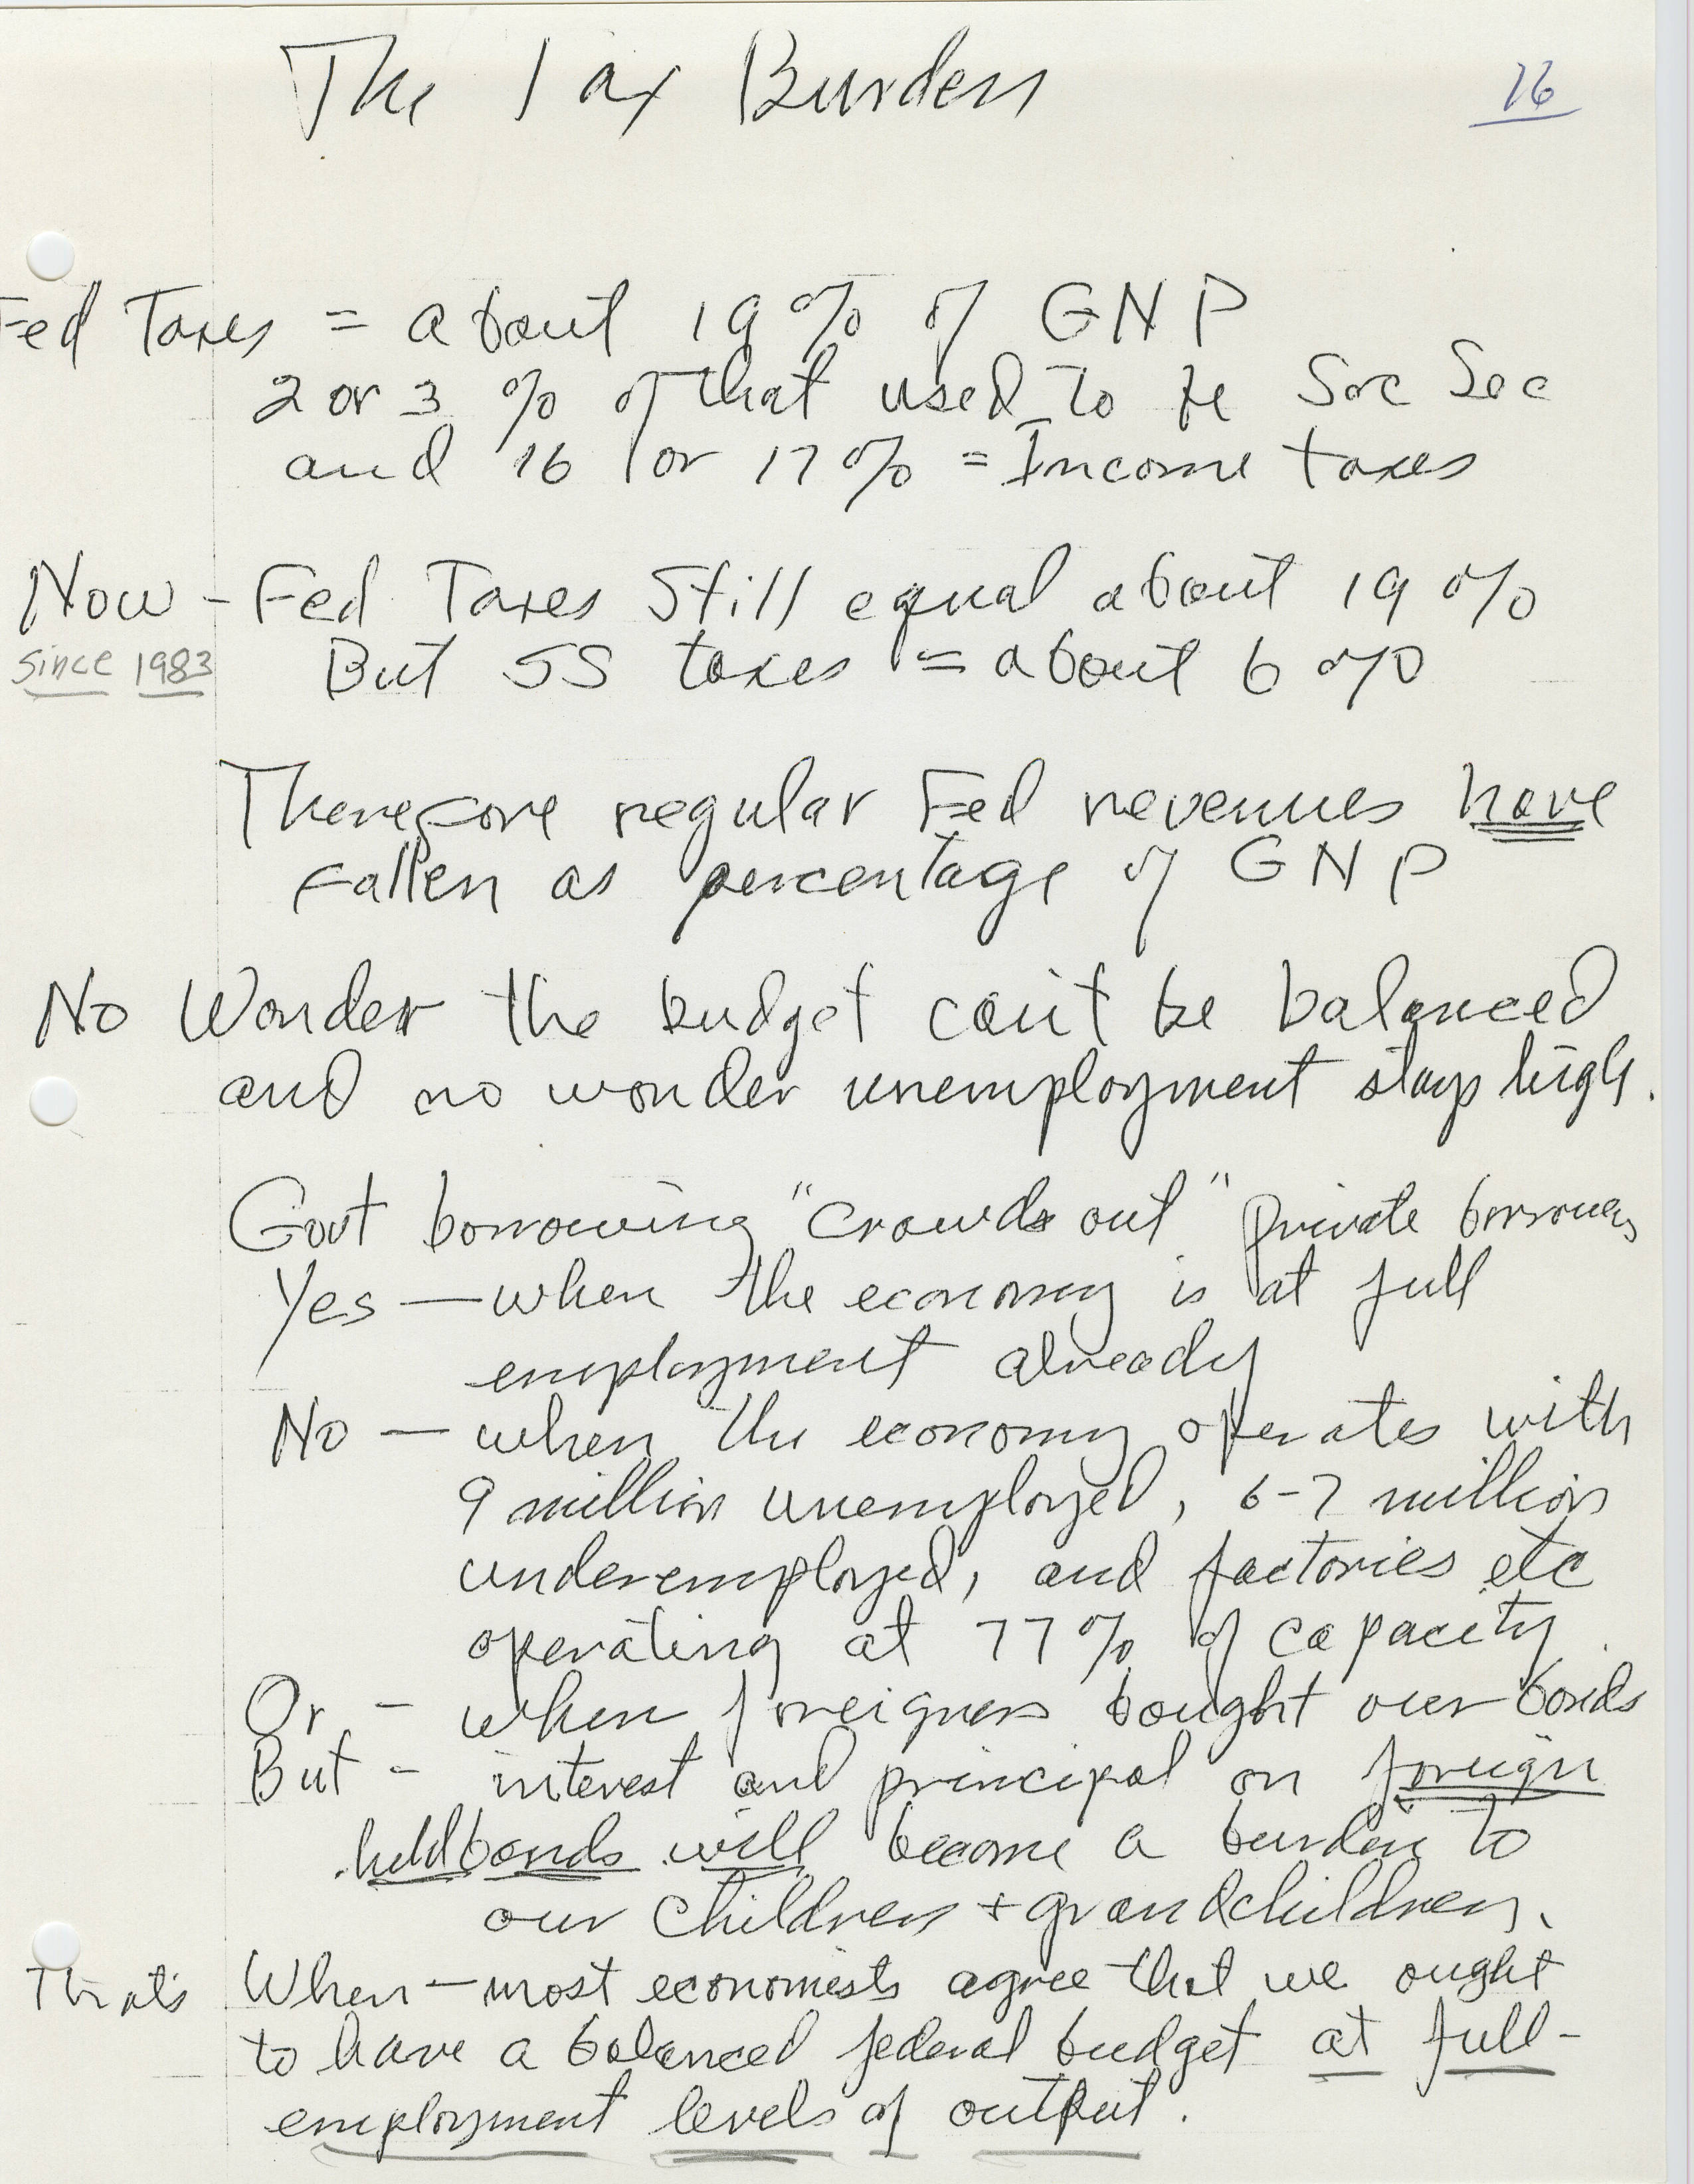 The Tax Burden
16
Fed Taxes = about 19% of GNP
2 or 3 % of that used to be Soc Sec
and 16 or 17% = Income taxes
Now - Fed Taxes Still equal about 19%
since 1983 But SS taxes = about 6%
Therefore regular Fed revenues have
fallen as percentage of GNP
No Wonder the budget can't be balanced
and no wonder unemployment stays high.
Govt borrowing "crowds out" private borrowers
Yes — when the economy is at full
employment already
No — when the economy operates with
9 million unemployed, 6-7 million
underemployed, and factories etc
operating at 77% of capacity.
Or - when foreigners bought our bonds
But - interest and principal on foreign
held bonds will become a burden to
our children + grandchildren.
That's When — most economists agree that we ought
to have a balanced federal budget at full-
employment levels of output.